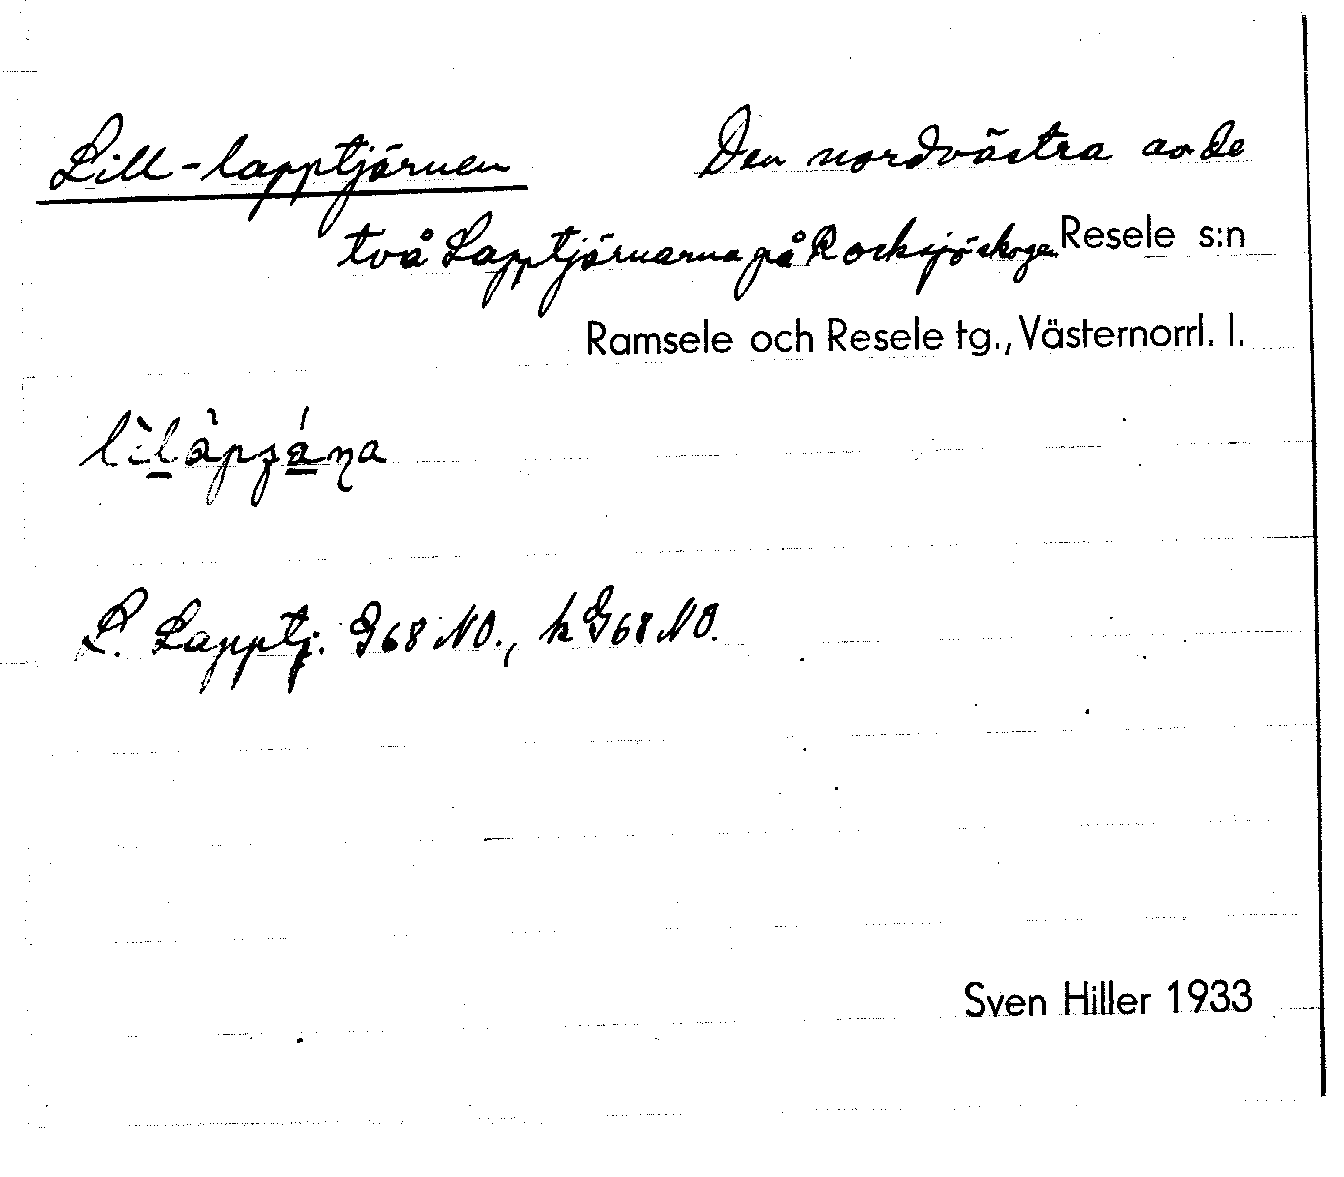 Lill-lapptjärnen Den nordvästra av de
två Lapptjärnarna på Rocksjöskogen Resele s:n
Ramsele och Resele tg., Västernorrl. l.
L. Lapptj. G68 NO., k G68 NO.
Sven Hiller 1933